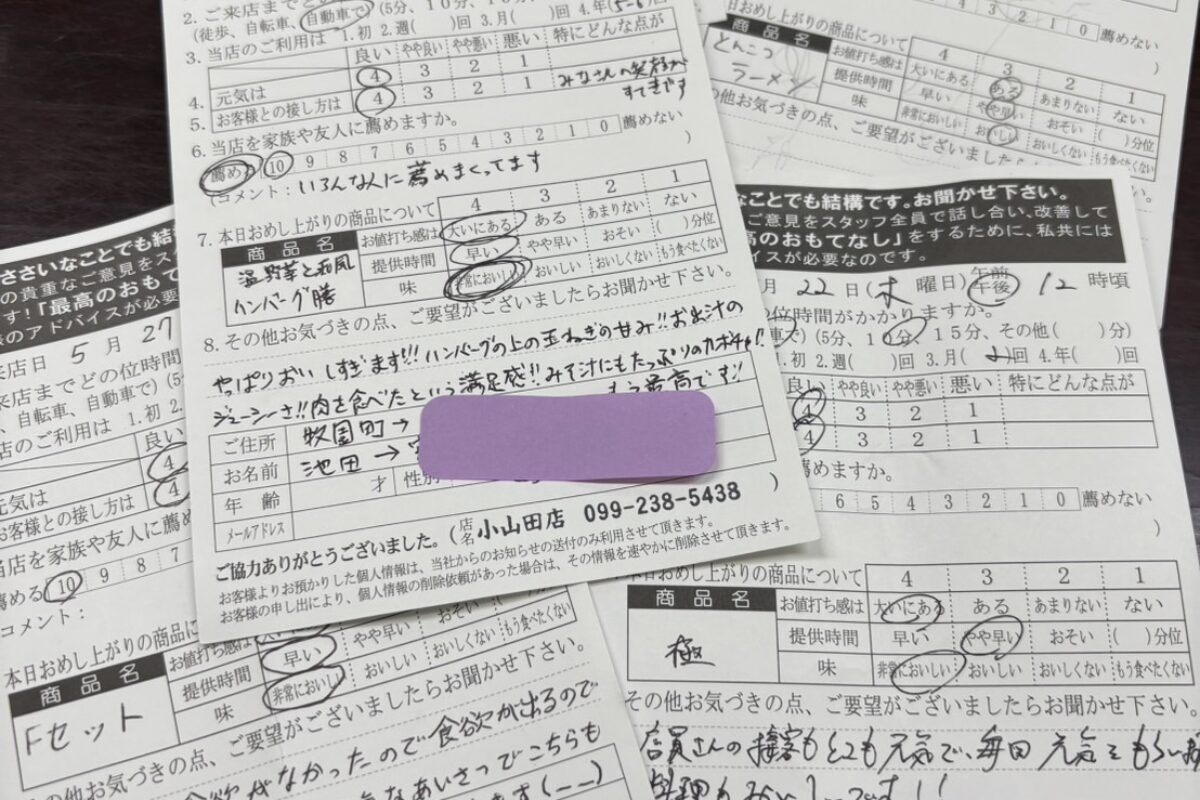 2. ご来店までど
(徒歩、自転車、自動車で)(5分、10分、15分、
3. 当店のご利用は 1.初 2.週( )回 3.月( )回 4.年(5-6)回
良い やや良い やや悪い 悪い 特にどんな点が
4. 元気は 4 3 2 1
5. お客様との接し方は 4 3 2 1
みなさんの笑顔が
すてきです
6. 当店を家族や友人に薦めますか。
薦める 10 9 8 7 6 5 4 3 2 1 0 薦めない
(コメント:いろんな人に薦めまくってます )
7. 本日おめし上がりの商品について 4 3 2 1
商品名 お値打ち感は 大いにある ある あまりない ない
温野菜と和風 提供時間 早い やや早い おそい ( )分位
ハンバーグ膳 味 非常においしい おいしい おいしくない もう食べたくない
8. その他お気づきの点、ご要望がございましたらお聞かせ下さい。
やっぱりおいしすぎます!!!ハンバーグの上の玉ねぎの甘み!!お出汁の
ジューシーさ!!肉を食べたという満足感!!みそ汁にもたっぷりのカボチャ!!
もう最高です!!
ご住所 牧園町→
お名前 池田→
年齢 才 性別
メールアドレス
ご協力ありがとうございました。(店名 小山田店 099-238-5438 )
お客様よりお預かりした個人情報は、当社からのお知らせの送付のみ利用させて頂きます。
お客様の申し出により、個人情報の削除依頼があった場合は、その情報を速やかに削除させて頂きます。
4 3 2 1 0 薦めない
おめし上がりの商品について 4 3 2 1
商品名 お値打ち感は 大いにある ある あまりない ない
とんこつ 提供時間 早い やや早い おそい ( )分位
ラーメン 味 非常においしい おいしい おいしくない もう食べたくない
の他お気づきの点、ご要望がございましたら
なことでも結構です。お聞かせ下さい。
ご意見をスタッフ全員で話し合い、改善して
高のおもてなし」をするために、私共には
イスが必要なのです。
月22日(木曜日)午前 午後 12時頃
位時間がかかりますか。
車で)(5分、10分、15分、その他( )分)
1.初 2.週( )回 3.月( )回 4.年( )回
良い やや良い やや悪い 悪い 特にどんな点が
4 3 2 1
4 3 2 1
薦めますか。
6 5 4 3 2 1 0 薦めない
本日おめし上がりの商品について 4 3 2 1
商品名 お値打ち感は 大いにある ある あまりない ない
極 提供時間 早い やや早い おそい ( )分位
味 非常においしい おいしい おいしくない もう食べたくない
その他お気づきの点、ご要望がございましたらお聞かせ下さい。
店員さんの接客もとても元気で、毎回元気をもらい
料理もおいしいです!!
ささいなことでも結構
の貴重なご意見をスタ
す!「最高のおもて
のアドバイスが必要
来店日 5月27
来店までどの位時間
、自転車、自動車で)(5分
店のご利用は 1.初 2.
良い
元気は 4
お客様との接し方は 4
当店を家族や友人に薦
薦める 10 9 8 7
コメント:
本日おめし上がりの商品に
商品名 お値打ち感は
Fセット 提供時間 早い やや早い おそい ( )分位
味 非常においしい おいしい おいしくない もう食べたくない
その他お気づきの点、ご要望がございましたらお聞かせ下さい。
食欲がなかったので食欲が出るので
なあいさつでこちらも
ます(--)